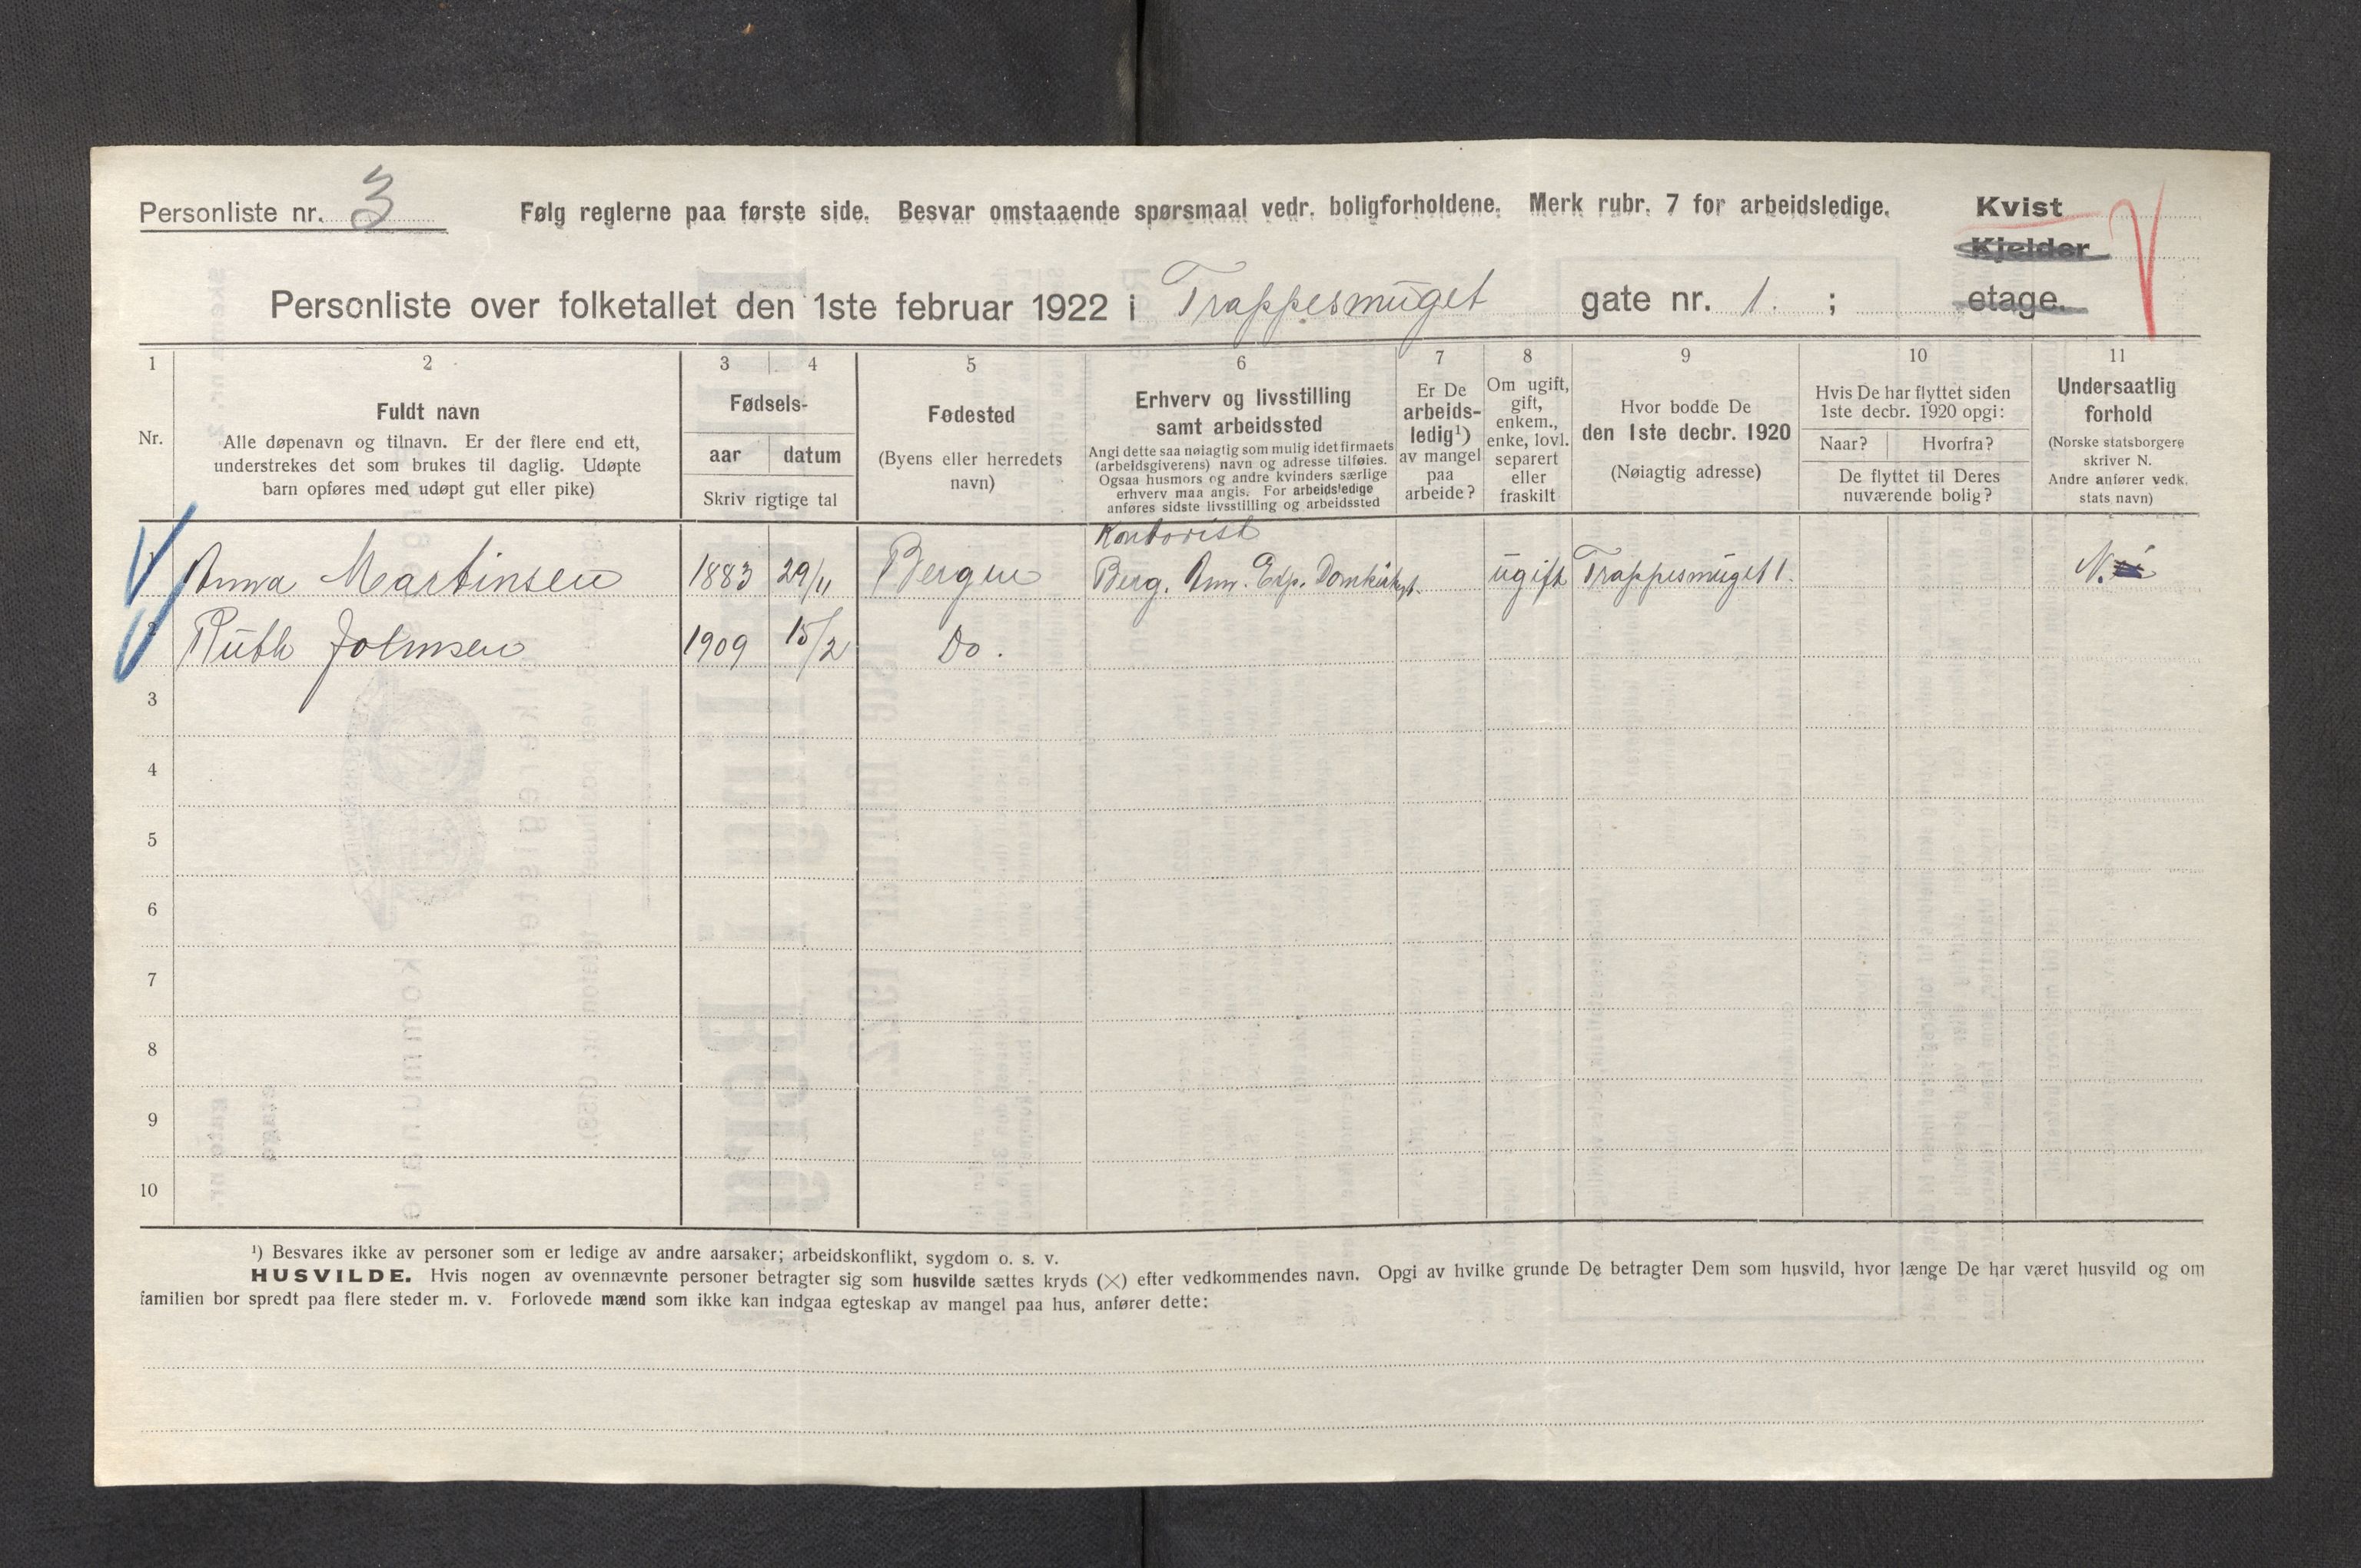 Personliste nr. 3
Følg reglerne paa første side. Besvar omstaaende spørsmaal vedr. boligforholdene. Merk rubr. 7 for arbeidsledige.
Kvist
Kjelder
etage.
Personliste over folketallet den 1ste februar 1922 i Trappesmuget gate nr. 1. ;
1 2 3 4 5 6 7 8 9 10 11
Nr.
Fuldt navn
Alle døpenavn og tilnavn. Er der flere end ett,
understrekes det som brukes til daglig. Udøpte
barn opføres med udøpt gut eller pike)
Fødsels-
aar datum
Skriv rigtige tal
Fødested
(Byens eller herredets
navn)
Erhverv og livsstilling
samt arbeidssted
Angi dette saa nøiagtig som mulig idet firmaets
(arbeidsgiverens) navn og adresse tilføies.
Ogsaa husmors og andre kvinders særlige
erhverv maa angis. For arbeidsledige
anføres sidste livsstilling og arbeidssted
Er De
arbeids-
ledig¹)
av mangel
paa
arbeide?
Om ugift,
gift,
enkem.,
enke, lovl.
separert
eller
fraskilt
Hvor bodde De
den 1ste decbr. 1920
(Nøiagtig adresse)
Hvis De har flyttet siden
1ste decbr. 1920 opgi:
Naar? Hvorfra?
De flyttet til Deres
nuværende bolig?
Undersaatlig
forhold
(Norske statsborgere
skriver N.
Andre anfører vedk.
stats navn)
Kontorist
1 Anna Martinsen 1883 29/11 Bergen Berg. Ann. Exp. Domkirkegt. ugift Trappesmuget 1. N.
2 Ruth Johnsen 1909 15/2 Do.
3
4
5
6
7
8
9
10
¹) Besvares ikke av personer som er ledige av andre aarsaker; arbeidskonflikt, sygdom o. s. v.
HUSVILDE. Hvis nogen av ovennævnte personer betragter sig som husvilde sættes kryds (×) efter vedkommendes navn. Opgi av hvilke grunde De betragter Dem som husvild, hvor længe De har været husvild og om
familien bor spredt paa flere steder m. v. Forlovede mænd som ikke kan indgaa egteskap av mangel paa hus, anfører dette: